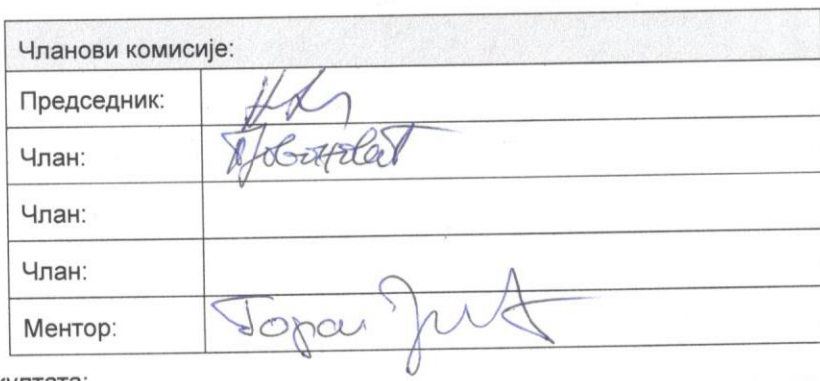 Чланови комисије:
Председник:
Члан:
Члан:
Члан:
Ментор: Горан